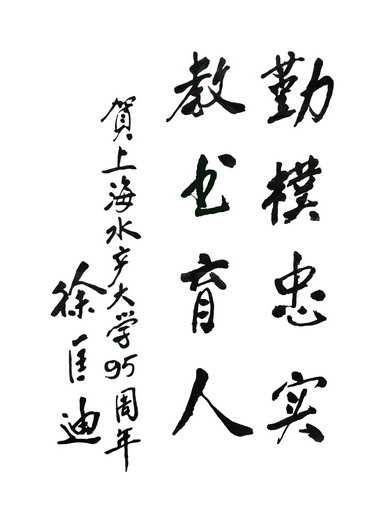 勤樸忠实
教书育人
賀上海水产大学95周年
徐匡迪